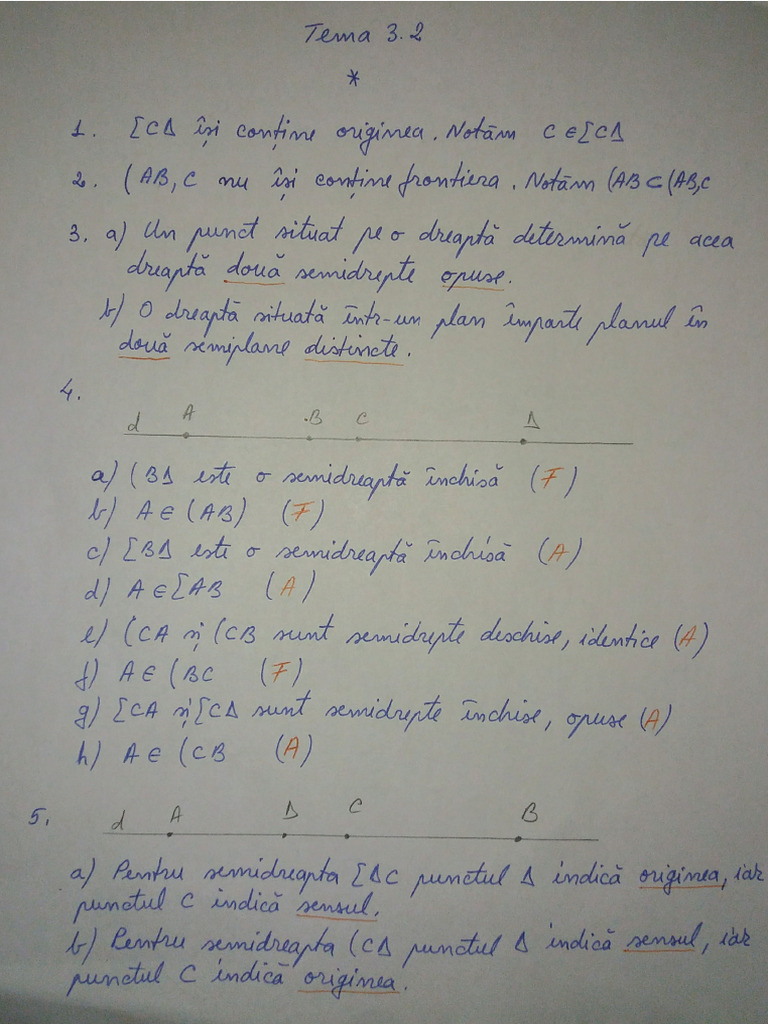 Tema 3.2
*
1. [CΔ își conține originea. Notăm C ∈ [CΔ
2. (AB, C nu își conține frontiera. Notăm (AB ⊂ (AB,C
3. a) Un punct situat pe o dreaptă determină pe acea
dreaptă două semidrepte opuse.
b) O dreaptă situată într-un plan împarte planul în
două semiplane distincte.
4.
d A B C Δ
a) (BΔ este o semidreaptă închisă (F)
b) A ∈ (AB) (F)
c) [BΔ este o semidreaptă închisă (A)
d) A ∈ [AB (A)
e) (CA și (CB sunt semidrepte deschise, identice (A)
f) A ∈ (BC (F)
g) [CA și [CΔ sunt semidrepte închise, opuse (A)
h) A ∈ (CB (A)
5. d A Δ C B
a) Pentru semidreapta [ΔC punctul Δ indică originea, iar
punctul C indică sensul.
b) Pentru semidreapta (CΔ punctul Δ indică sensul, iar
punctul C indică originea.